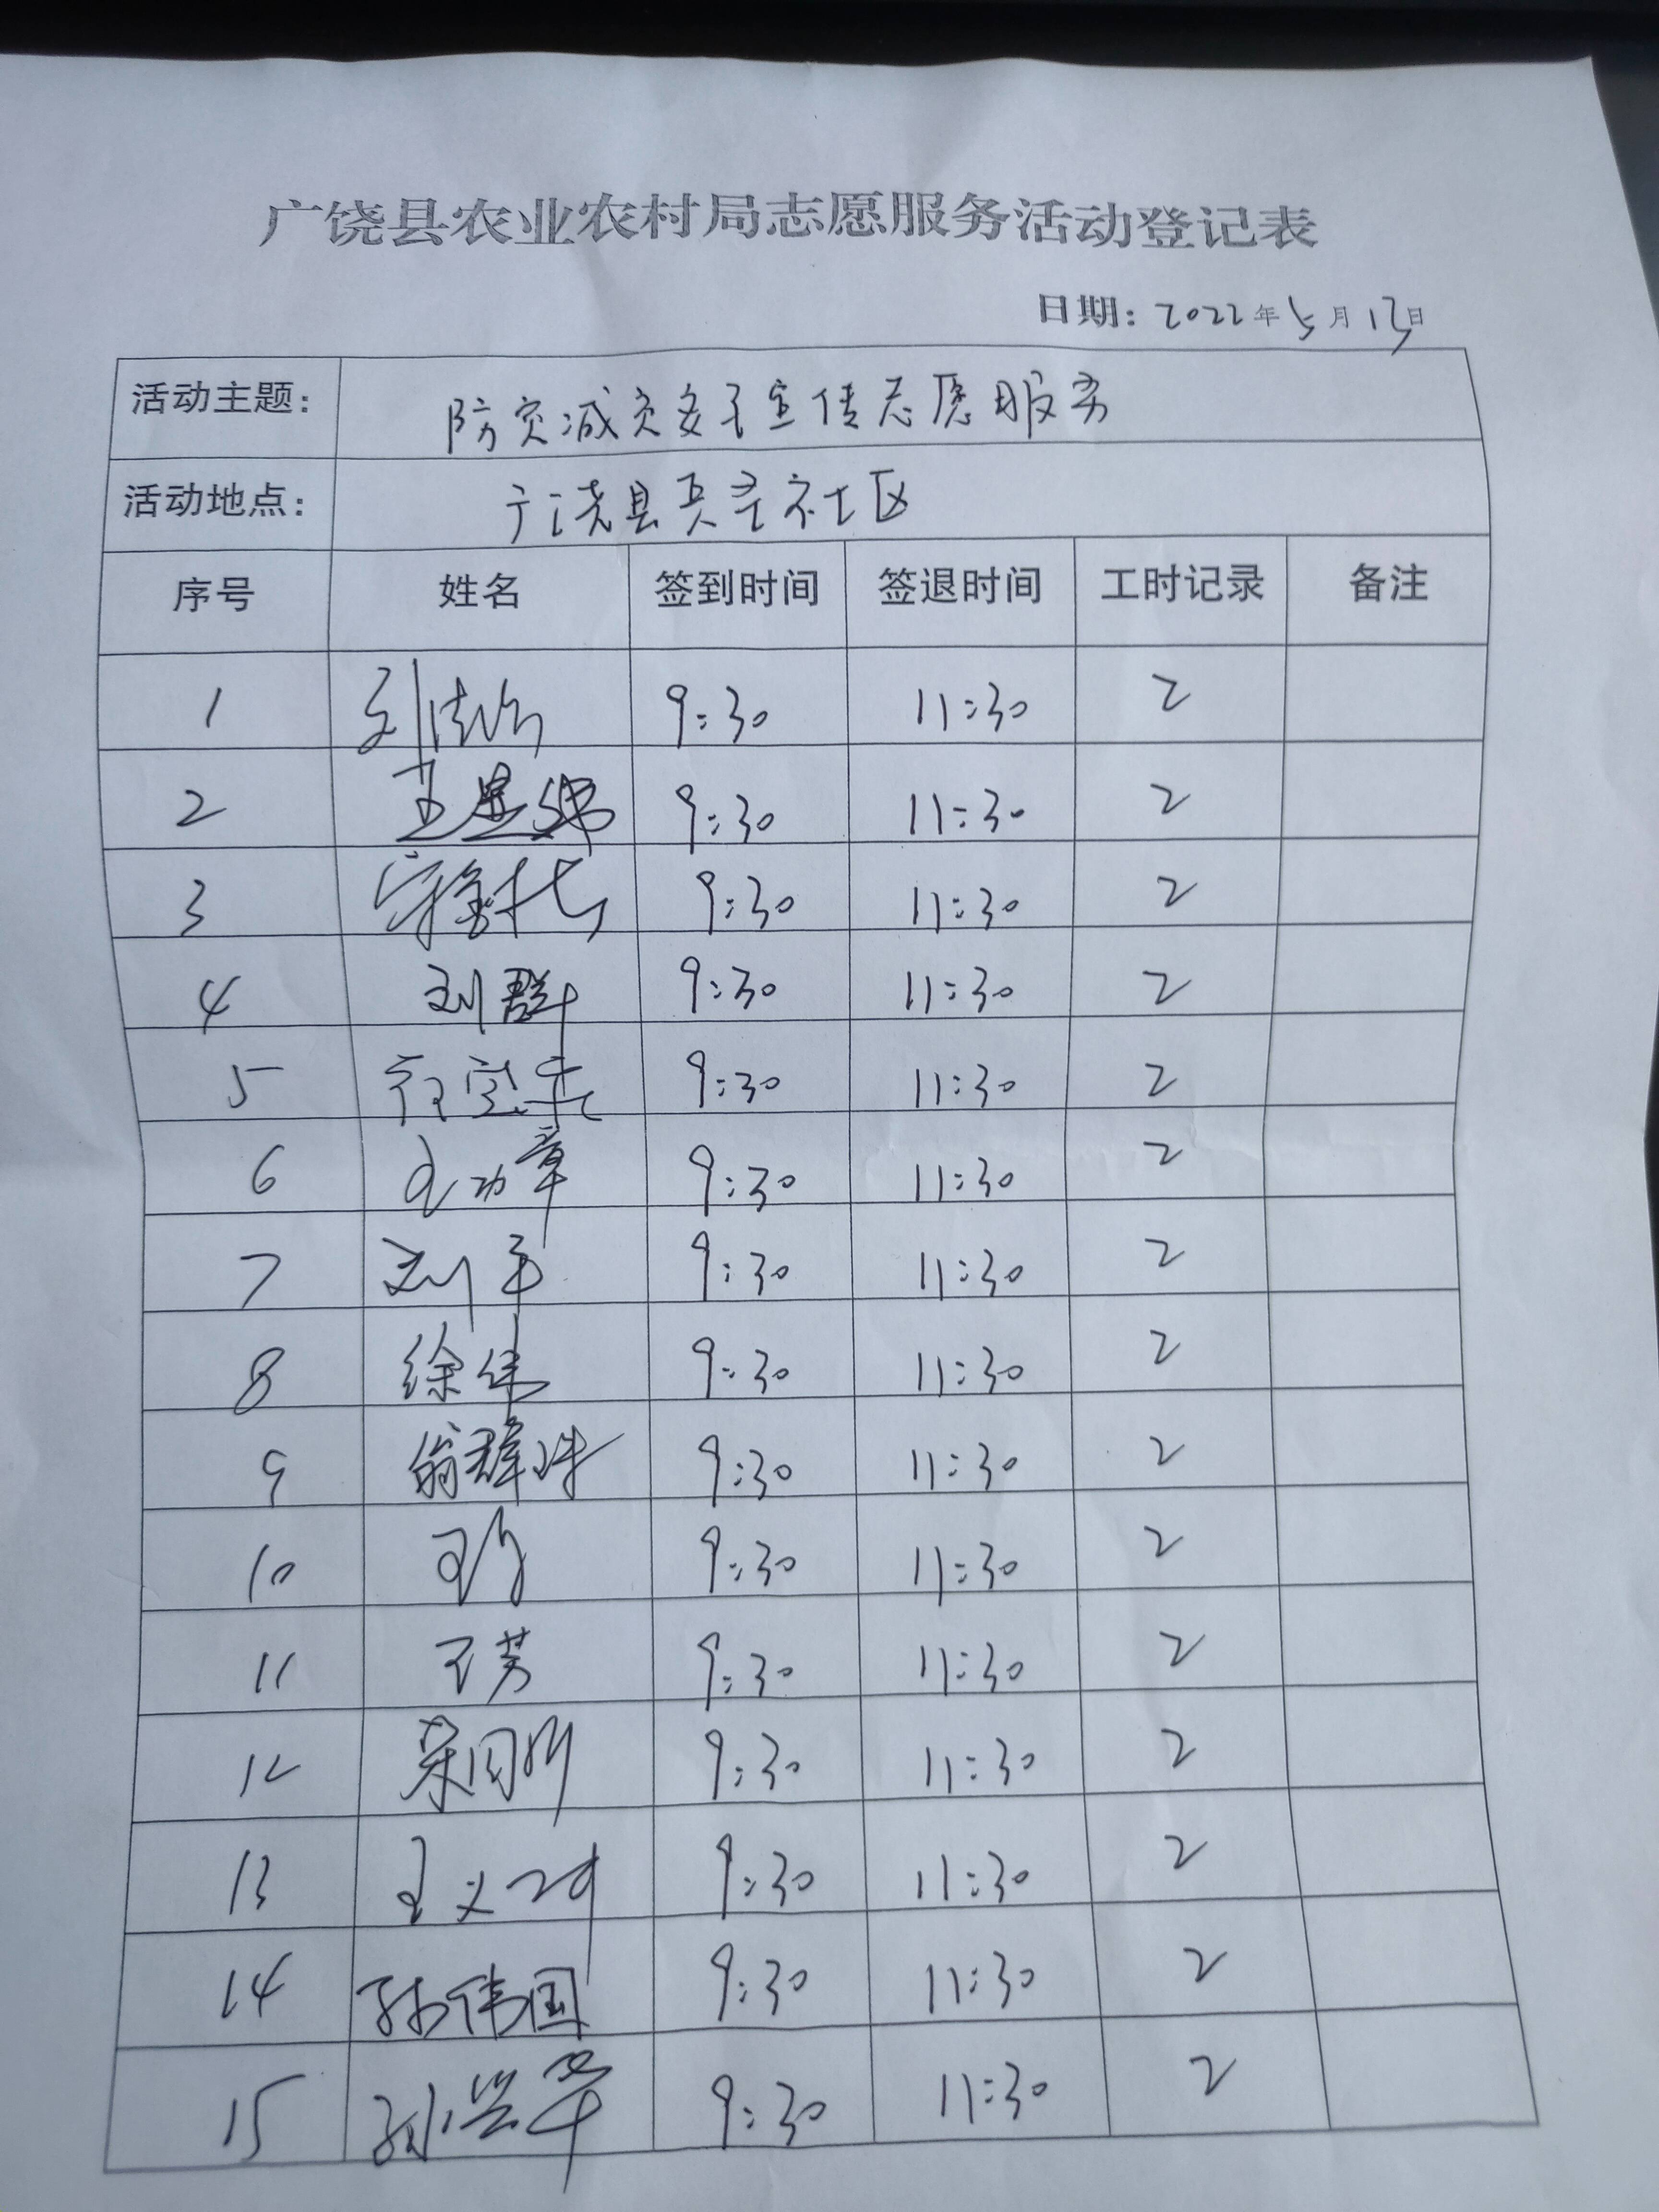 广饶县农业农村局志愿服务活动登记表
日期: 2022年5月13日
活动主题: 防灾减灾安全宣传志愿服务
活动地点: 广饶县乐安社区
序号 姓名 签到时间 签退时间 工时记录 备注
1 9:30 11:30 2
2 9:30 11:30 2
3 9:30 11:30 2
4 刘群 9:30 11:30 2
5 9:30 11:30 2
6 王功章 9:30 11:30 2
7 9:30 11:30 2
8 徐伟 9:30 11:30 2
9 9:30 11:30 2
10 9:30 11:30 2
11 王芳 9:30 11:30 2
12 9:30 11:30 2
13 9:30 11:30 2
14 孙伟国 9:30 11:30 2
15 孙兴华 9:30 11:30 2